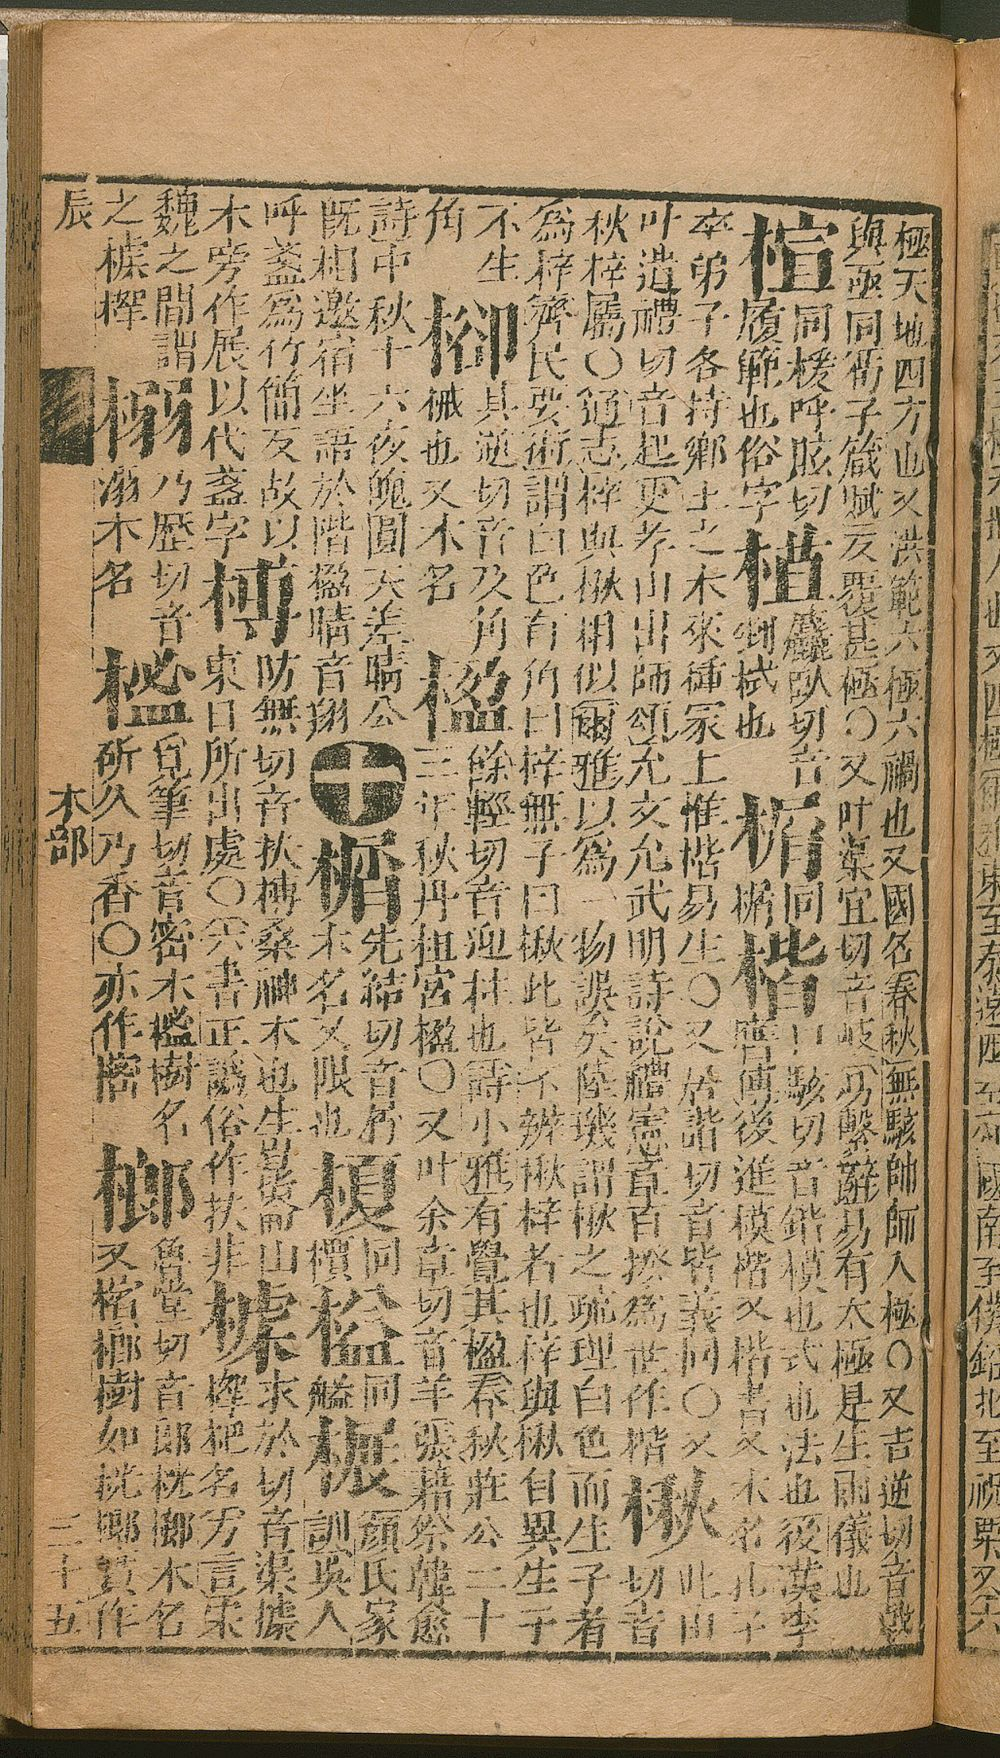 極天地四方也又洪範六極六禍也又國名春秋無駭帥師入極〇又吉逆切音戟
與亟同荀子箴賦反覆甚極〇又叶渠宜切音岐易繫辭易有太極是生兩儀也
楦同楥呼眩切履範也俗字
臥切音剉杙也
楈同楯
楷口駭切音鍇模也式也法也後漢李膺傳後進模楷又楷書又木名孔子
卒弟子各持鄉土之木來種冢上惟楷易生〇又居諧切音皆義同〇又
叶遣禮切音起更考山出師頌允文允武明詩說禮憲章百揆爲世作楷
楸此由切音
秋梓屬〇通志梓與楸相似爾雅以爲一物誤矣陸璣謂楸之疏理白色而生子者
爲梓齊民要術謂白色有角曰梓無子曰楸此皆不辨楸梓者也梓與楸自異生子
不生角
㭲其逆切音及角械也又木名
楹餘輕切音迎柱也詩小雅有覺其楹春秋莊公二十三年秋丹桓宮楹〇又叶余章切音羊張籍祭韓愈
詩中秋十六夜魄圓天差晴公
既相邀宿坐語於階楹晴音翔
十
榍先結切音屑木名又限也
榎同檟
同艦
榐顏氏家訓吳人
呼盞爲竹簡反故以
木旁作展以代盞字
榑防無切音扶榑桑神木也生崑崙山東日所出處〇六書正譌俗作扶非
榘求於切音渠樨杷名方言宋
魏之間謂之樨
榒乃歷切音溺木名
榓覓筆切音密木榓樹名所久乃香〇亦作樒
榔魯堂切音郎桄榔木名又檳榔樹如桄榔實作
辰
木部
三十五